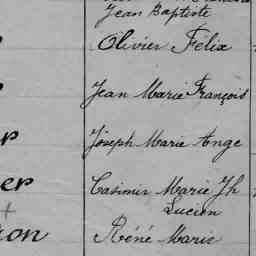 Jean Baptiste
Olivier Félix
Jean Marie François
Joseph Marie Ange
er Casimir Marie Jh
Lucien
on Réné Marie